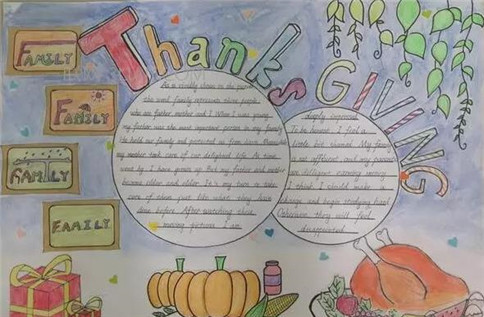 Thanks
GIVING
FAMILY
FAMILY
FAMILY
FAMILY
As is vividly shown in the
the word family represents three people
who are father mother and I When I was young
my father was the most important person in my family
He held our family and protected us from
my mother took care of our delighted life As time
went by I have grown up But my father and mother
become older and older It's my turn to take
care of them just like what they have
done before After watching these
moving pictures I am
deeply impressed
To be honest I feel a
little bit ashamed My family
is not affluent and my parents
are
I think I should make a
change and begin studying hard
Otherwise they will feel
disappointed